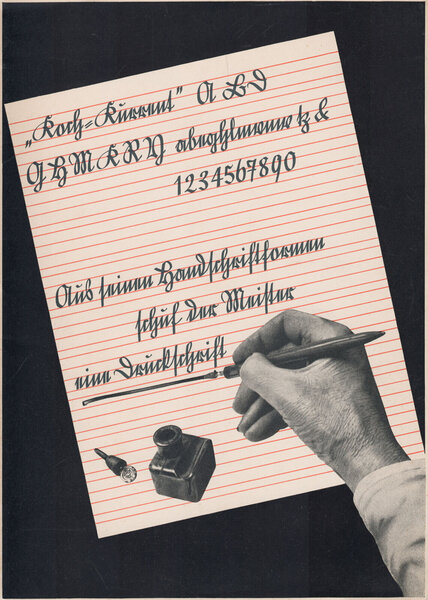 „Koch=Kurrent" A B D
G H M K R Y tz &
1234567890
Aus seinen Handschriftformen
schuf der Meister
eine Druckschrift